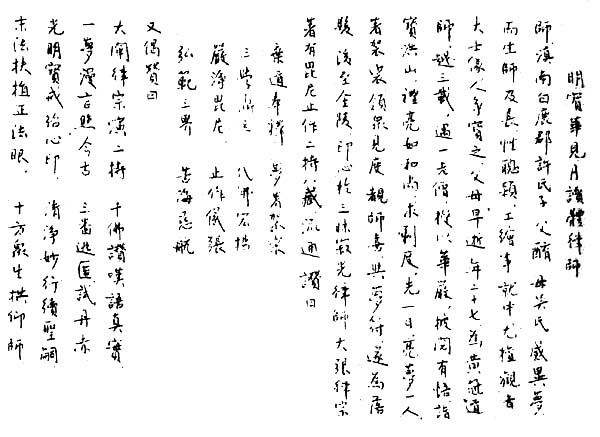 明寶華見月讀體律師
師滇南白鹿郡許氏子父酺母吳氏感異夢
而生師及長性聰穎工繪事就中尤擅觀音
大士像人爭寶之父母早逝年二十七為黃冠道
師越三載遇一老僧授以華嚴披閱有悟詣
寶洪山禮亮如和尚求剃度先一日亮夢一人
著袈裟領眾見度觀師喜與夢符遂為落
髮後至金陵印心於三昧寂光律師大張律宗
著有毘尼止作二持八藏流通讚曰
棄道本禪 夢著袈裟
三學齊 八
嚴淨毘尼 止作儀張
弘範三界 苦海慈航
又偈贊曰
大闡律宗演二持 十佛讚嘆語真實
一夢漫言照今古 三番逃匿試丹赤
光明寶戒紹心印 清淨妙行續聖嗣
末法扶植正法眼 十方眾生拱仰師